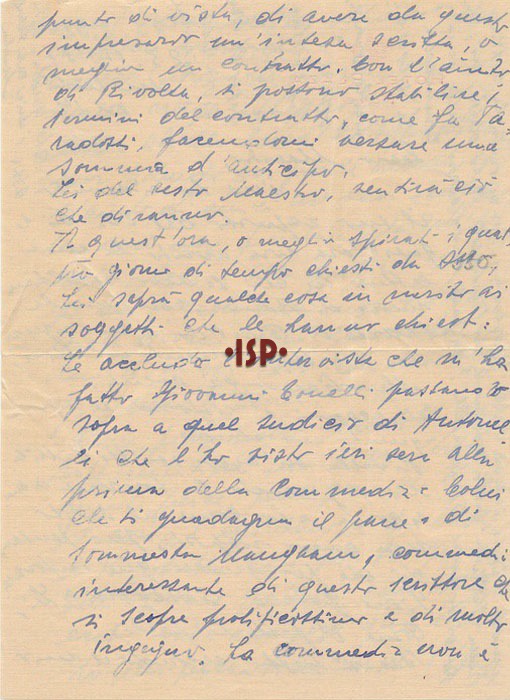 punto di vista, di avere da questo
impresario un'intesa scritta, o
meglio un contratto. Con l'aiuto
di Rivolta, si possono stabilire i
termini del contratto, come fa Ta-
radosti, facendomi versare una
somma d'anticipo.
Lei del resto Maestro, sentirà ciò
che diranno.
A quest'ora, o meglio spirati i quat
tro giorni di tempo chiesti da
Lei saprà qualche cosa in merito ai
soggetti che le hanno chiesti:
Le accludo l'intervista che m'ha
·ISP·
fatto Giovanni Bonelli passando
sopra a quel sudicio di Antonel
li che l'ho visto ieri sera alla
prima della Commedia: Colui
che si guadagna il pane: di
Sommerset Maugham, commedia
interessante di questo scrittore che
si scopre prolificissimo e di molto
ingegno. La commedia non è